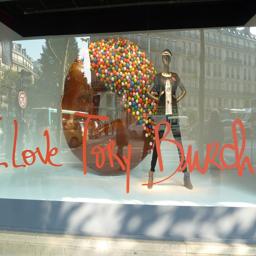 I Love Tory Burch